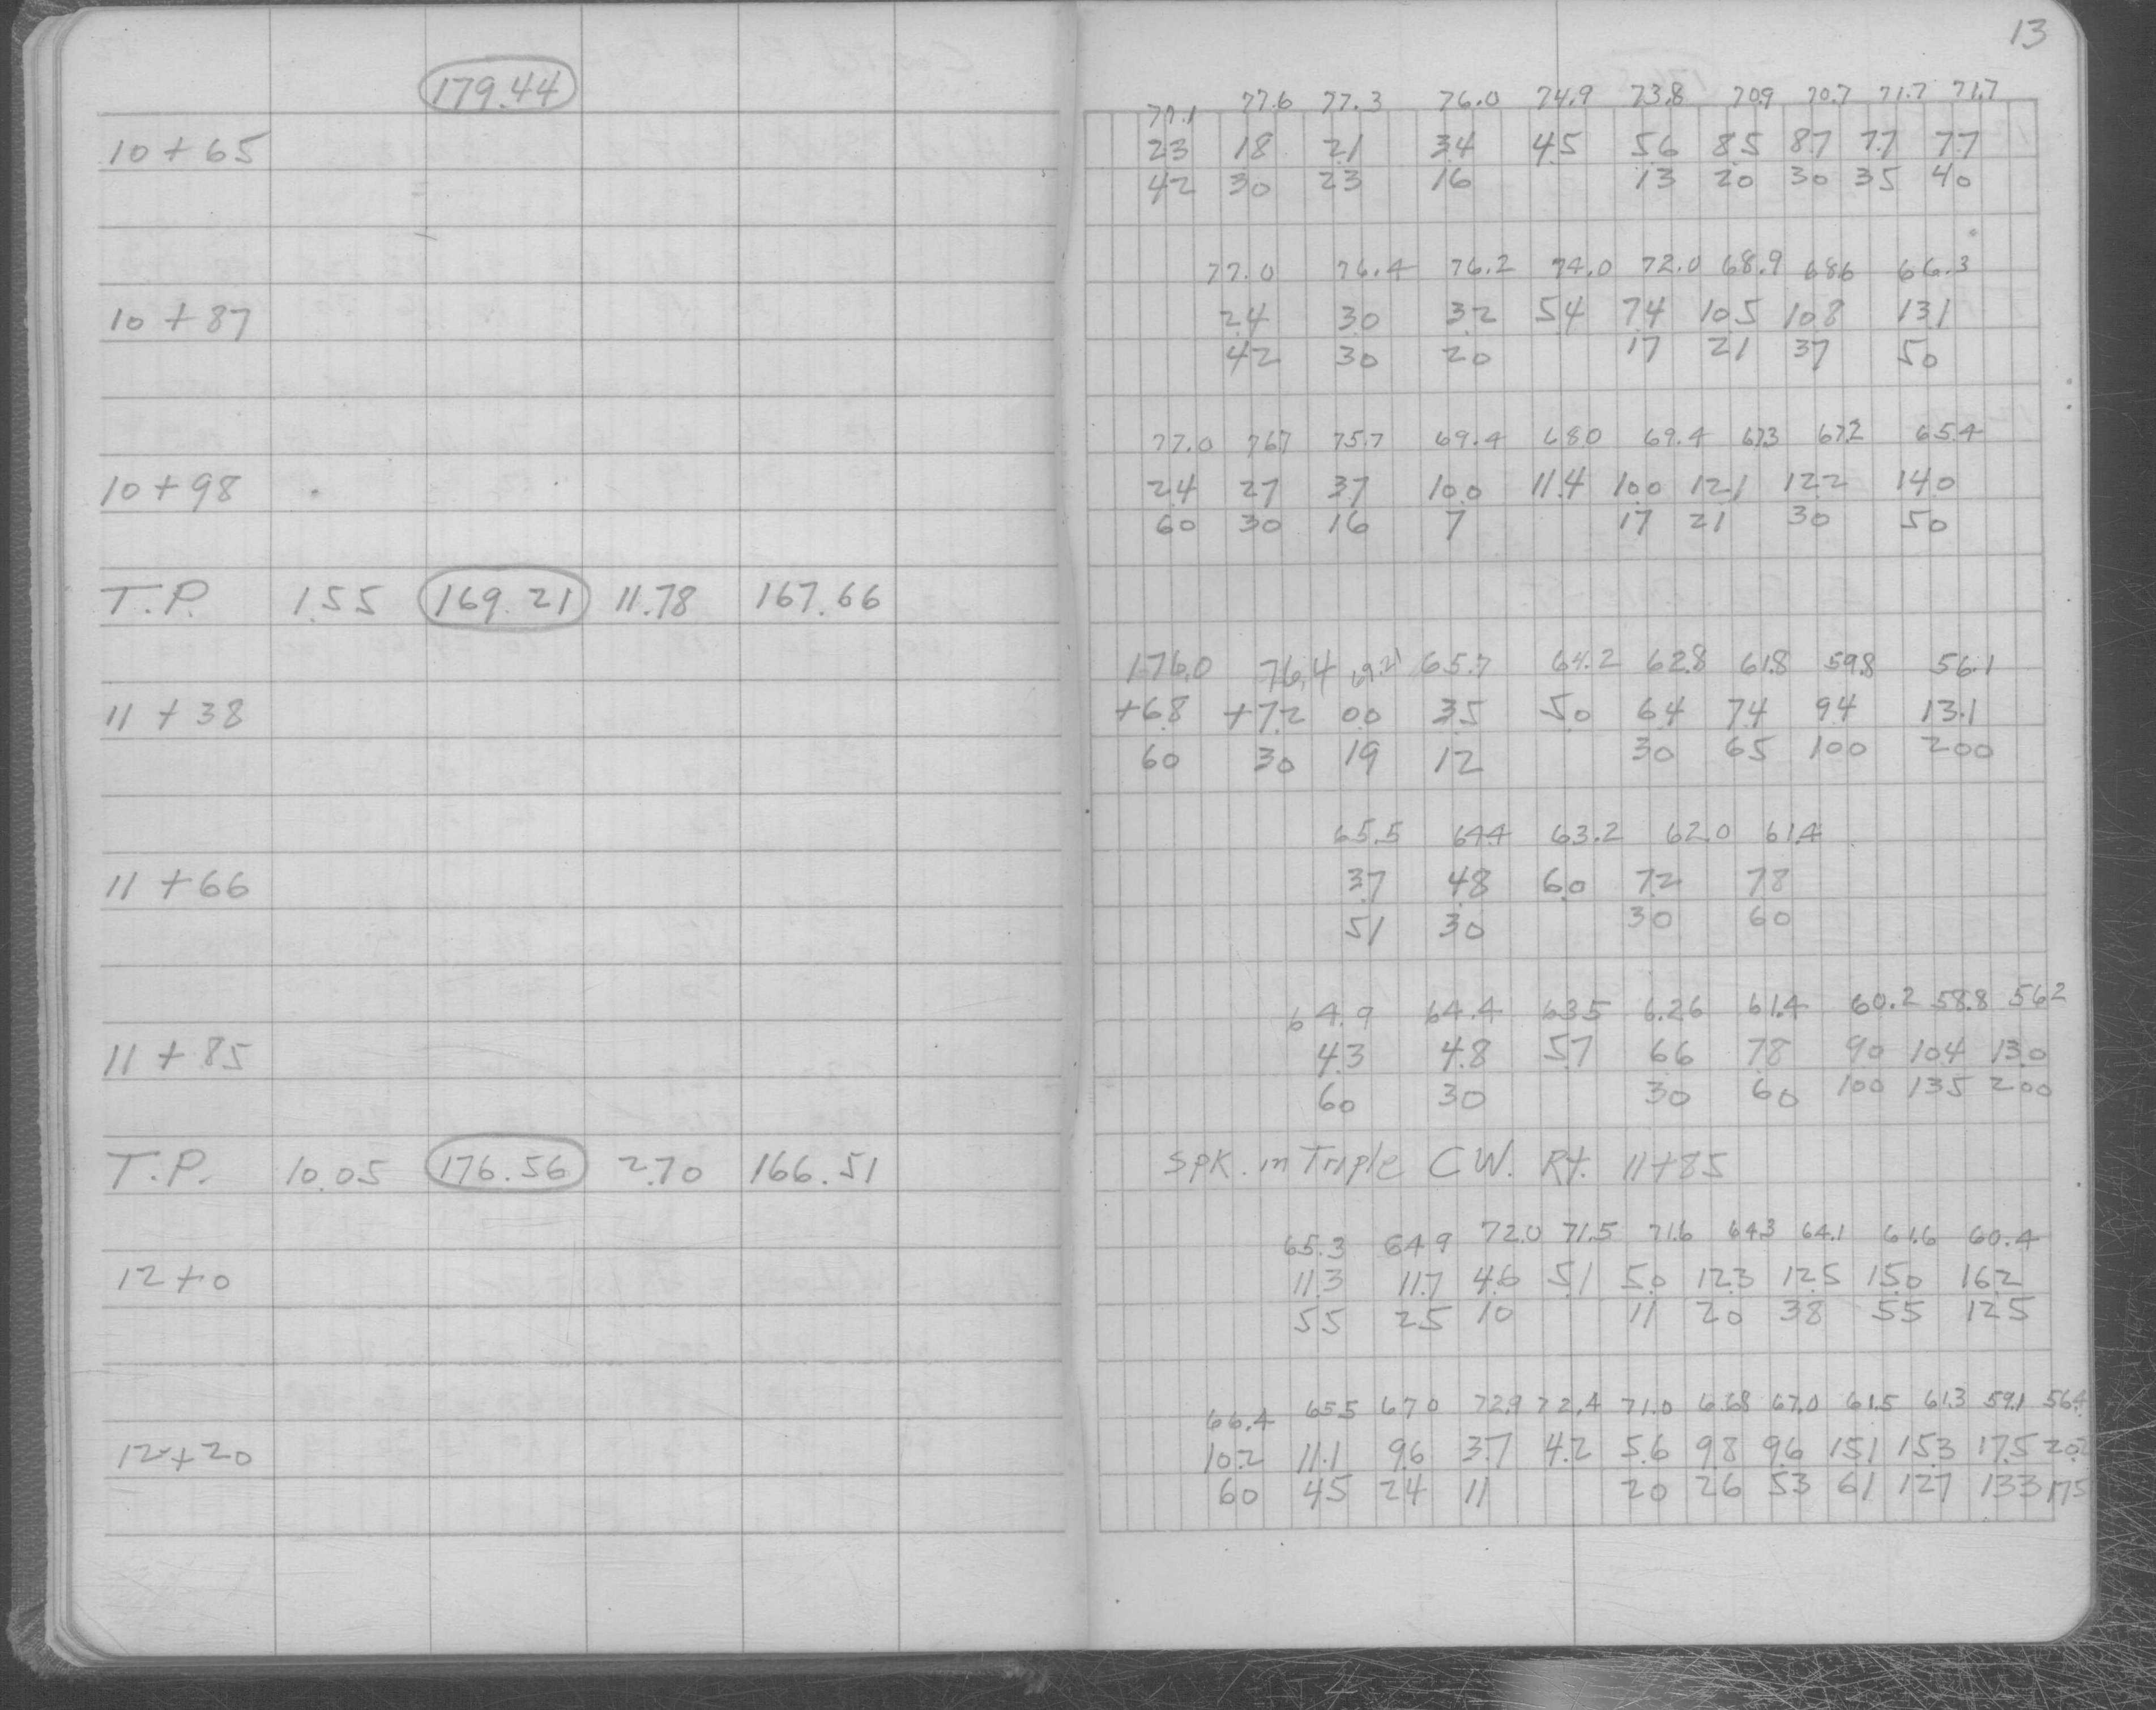 13
179.44
77.1 77.6 77.3 76.0 74.9 73.8 70.9 70.7 71.7 71.7
10+65 23 18 21 34 45 56 85 87 77 77
42 30 23 16 13 20 30 35 40
77.0 76.4 76.2 74.0 72.0 68.9 68.6 66.3
10+87 24 30 32 54 74 10.5 10.8 131
42 30 20 17 21 37 50
77.0 76.7 75.7 69.4 68.0 69.4 67.3 67.2 65.4
10+98 24 27 37 10.0 11.4 10.0 12.1 12.2 14.0
60 30 16 7 17 21 30 50
T.P. 1.55 169.21 11.78 167.66
176.0 76.4 69.21 65.7 64.2 62.8 61.8 59.8 56.1
11+38 +6.8 +7.2 00 3.5 5.0 6.4 7.4 9.4 13.1
60 30 19 12 30 65 100 200
65.5 64.4 63.2 62.0 61.4
11+66 3.7 4.8 6.0 7.2 7.8
51 30 30 60
64.9 64.4 63.5 6.26 61.4 60.2 58.8 56.2
11+85 4.3 4.8 5.7 6.6 7.8 9.0 10.4 13.0
60 30 30 60 100 135 200
T.P. 10.05 176.56 2.70 166.51 Spk. in Triple C.W. Rt. 11+85
65.3 64.9 72.0 71.5 71.6 64.3 64.1 61.6 60.4
12+0 11.3 11.7 4.6 5.1 5.0 12.3 12.5 15.0 16.2
55 25 10 11 20 38 55 125
66.4 65.5 67.0 72.9 72.4 71.0 6.68 67.0 61.5 61.3 59.1 56.4
12+20 10.2 11.1 9.6 3.7 4.2 5.6 9.8 9.6 15.1 15.3 17.5
60 45 24 11 20 26 53 61 127 133 175